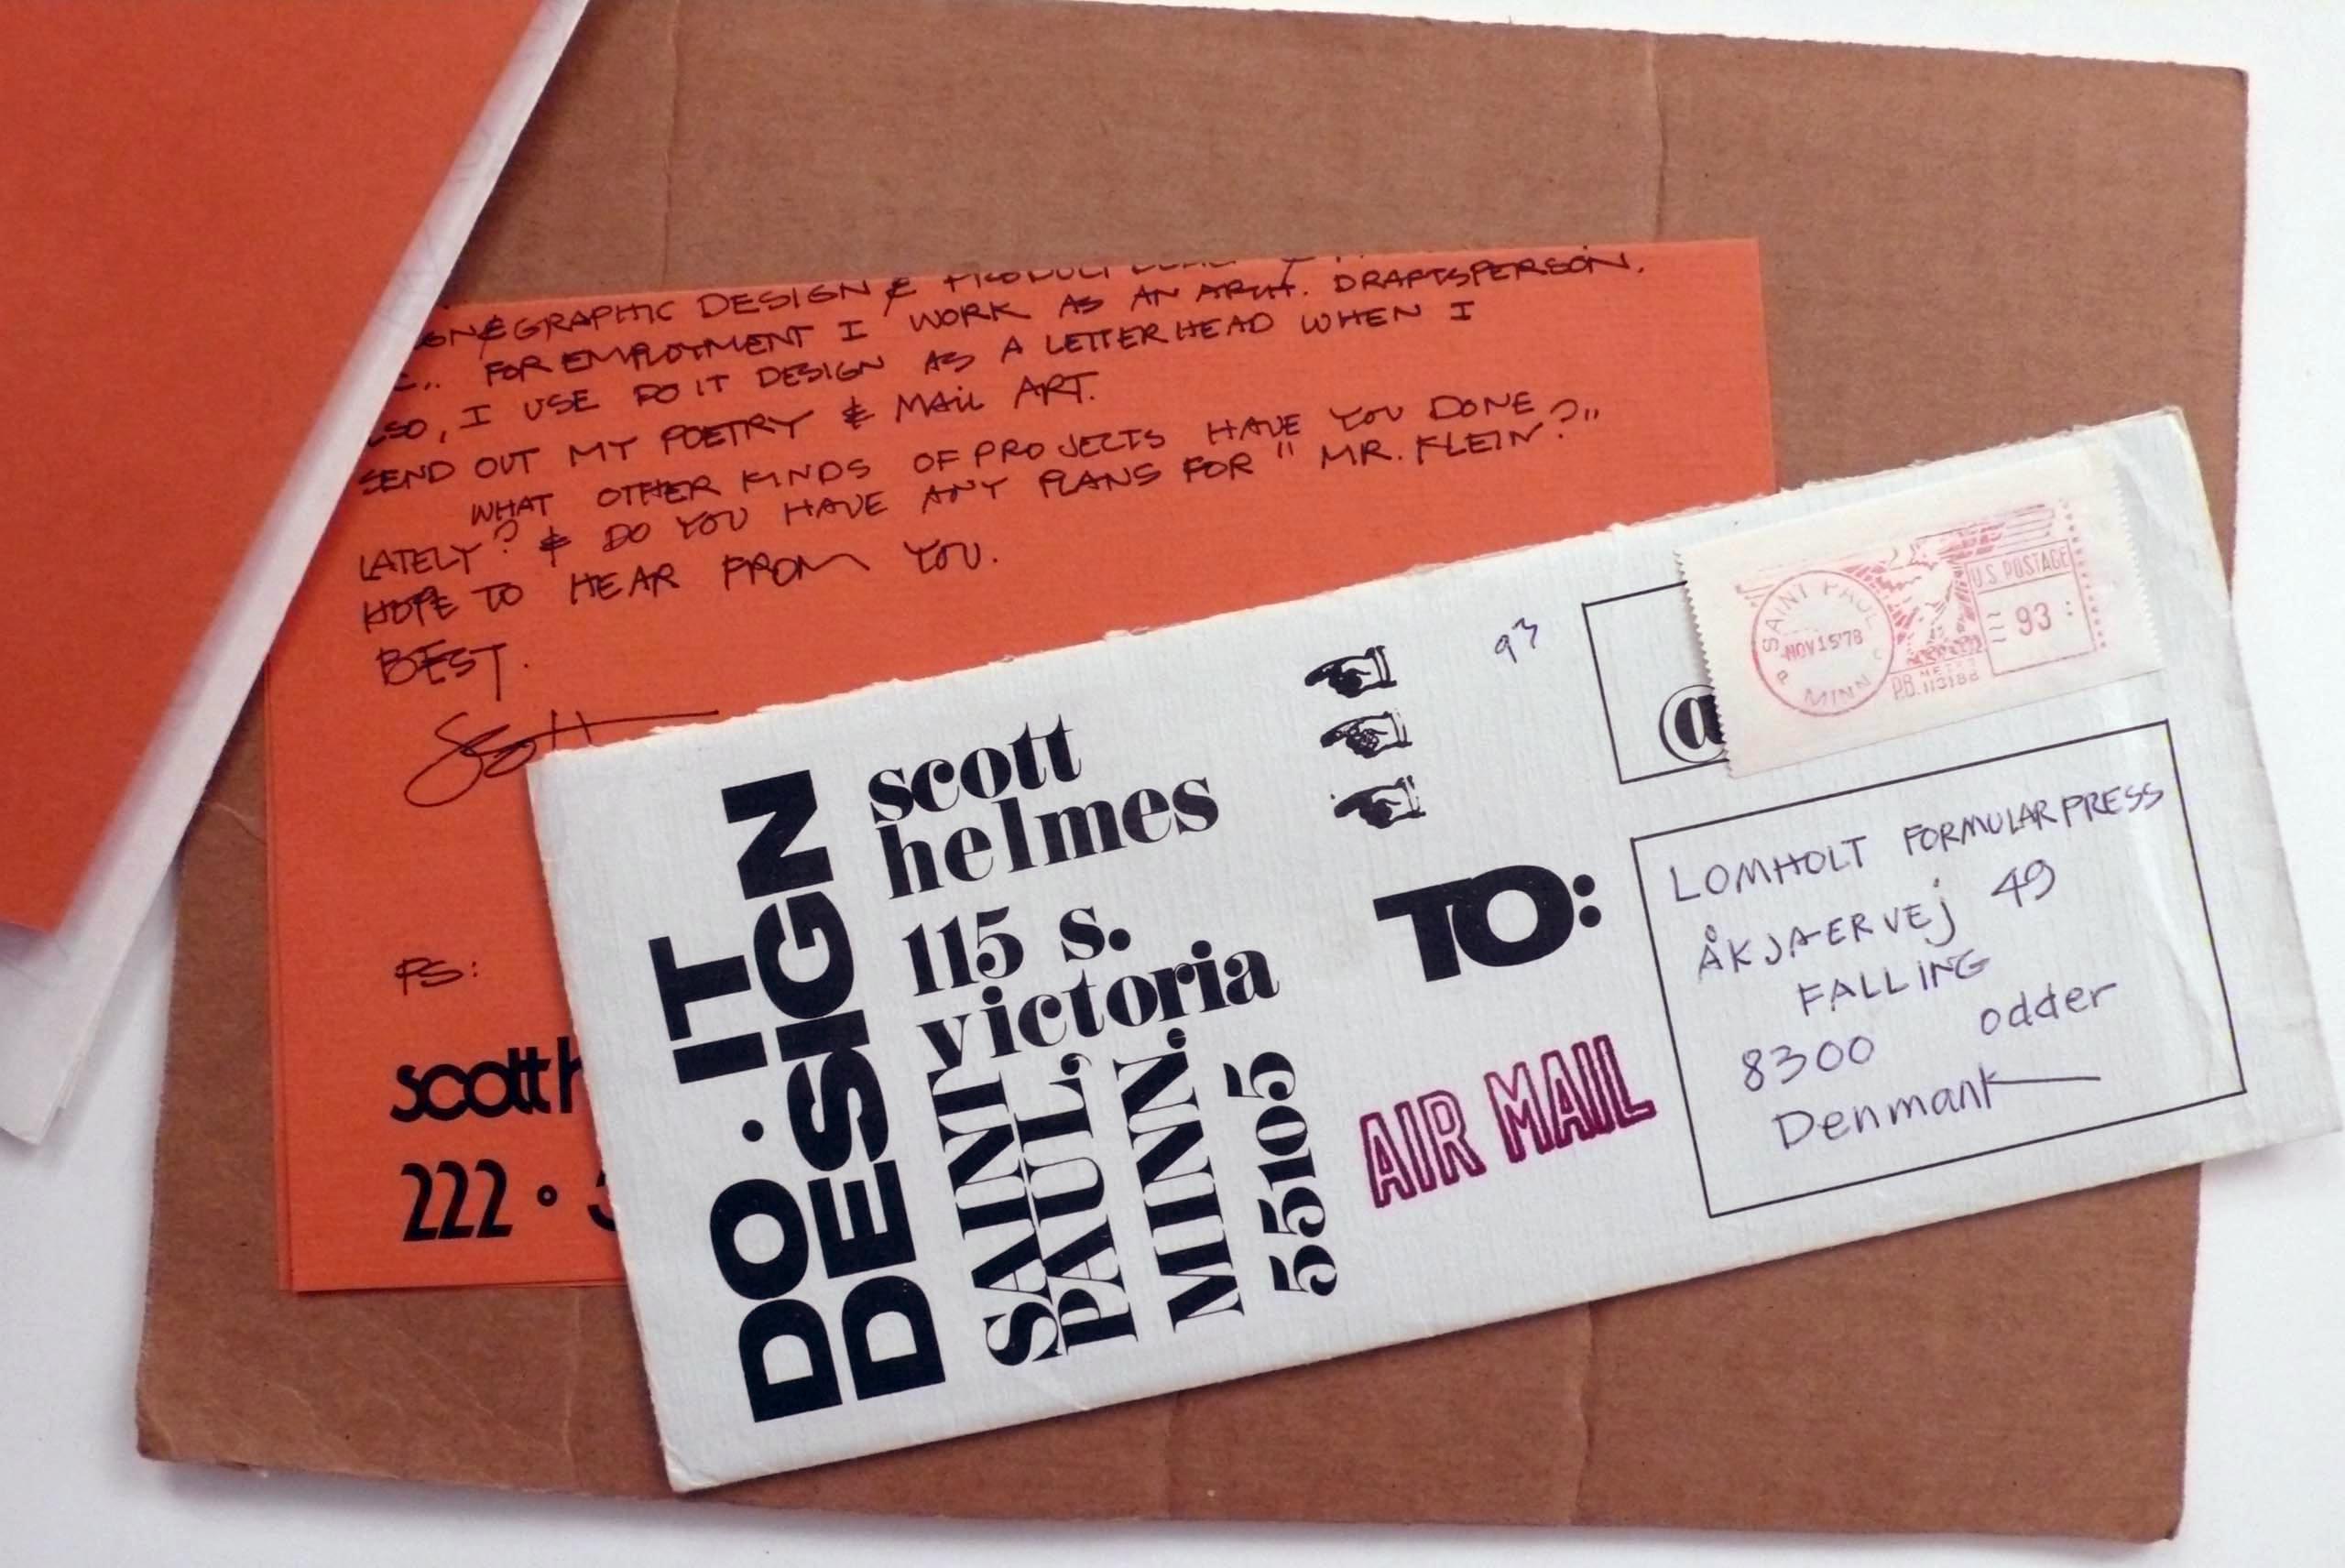 GRAPHIC DESIGN &
FOR EMPLOYMENT I WORK AS AN ARCH. DRAFTSPERSON.
I USE DO IT DESIGN AS A LETTERHEAD WHEN I
SEND OUT MY POETRY & MAIL ART.
WHAT OTHER KINDS OF PROJECTS HAVE YOU DONE
LATELY? & DO YOU HAVE ANY PLANS FOR "MR. KLEIN?"
HOPE TO HEAR FROM YOU.
BEST.
Scott
PS:
scott h
222 •
DO • IT
DESIGN
scott
helmes
115 s.
victoria
SAINT
PAUL,
MINN.
55105
93
@
SAINT PAUL
NOV 15 '78
MINN
U.S. POSTAGE
93
METER
P.B. 113188
TO:
AIR MAIL
LOMHOLT FORMULAR PRESS
ÅKJAERVEJ 49
FALLING
8300 odder
Denmark